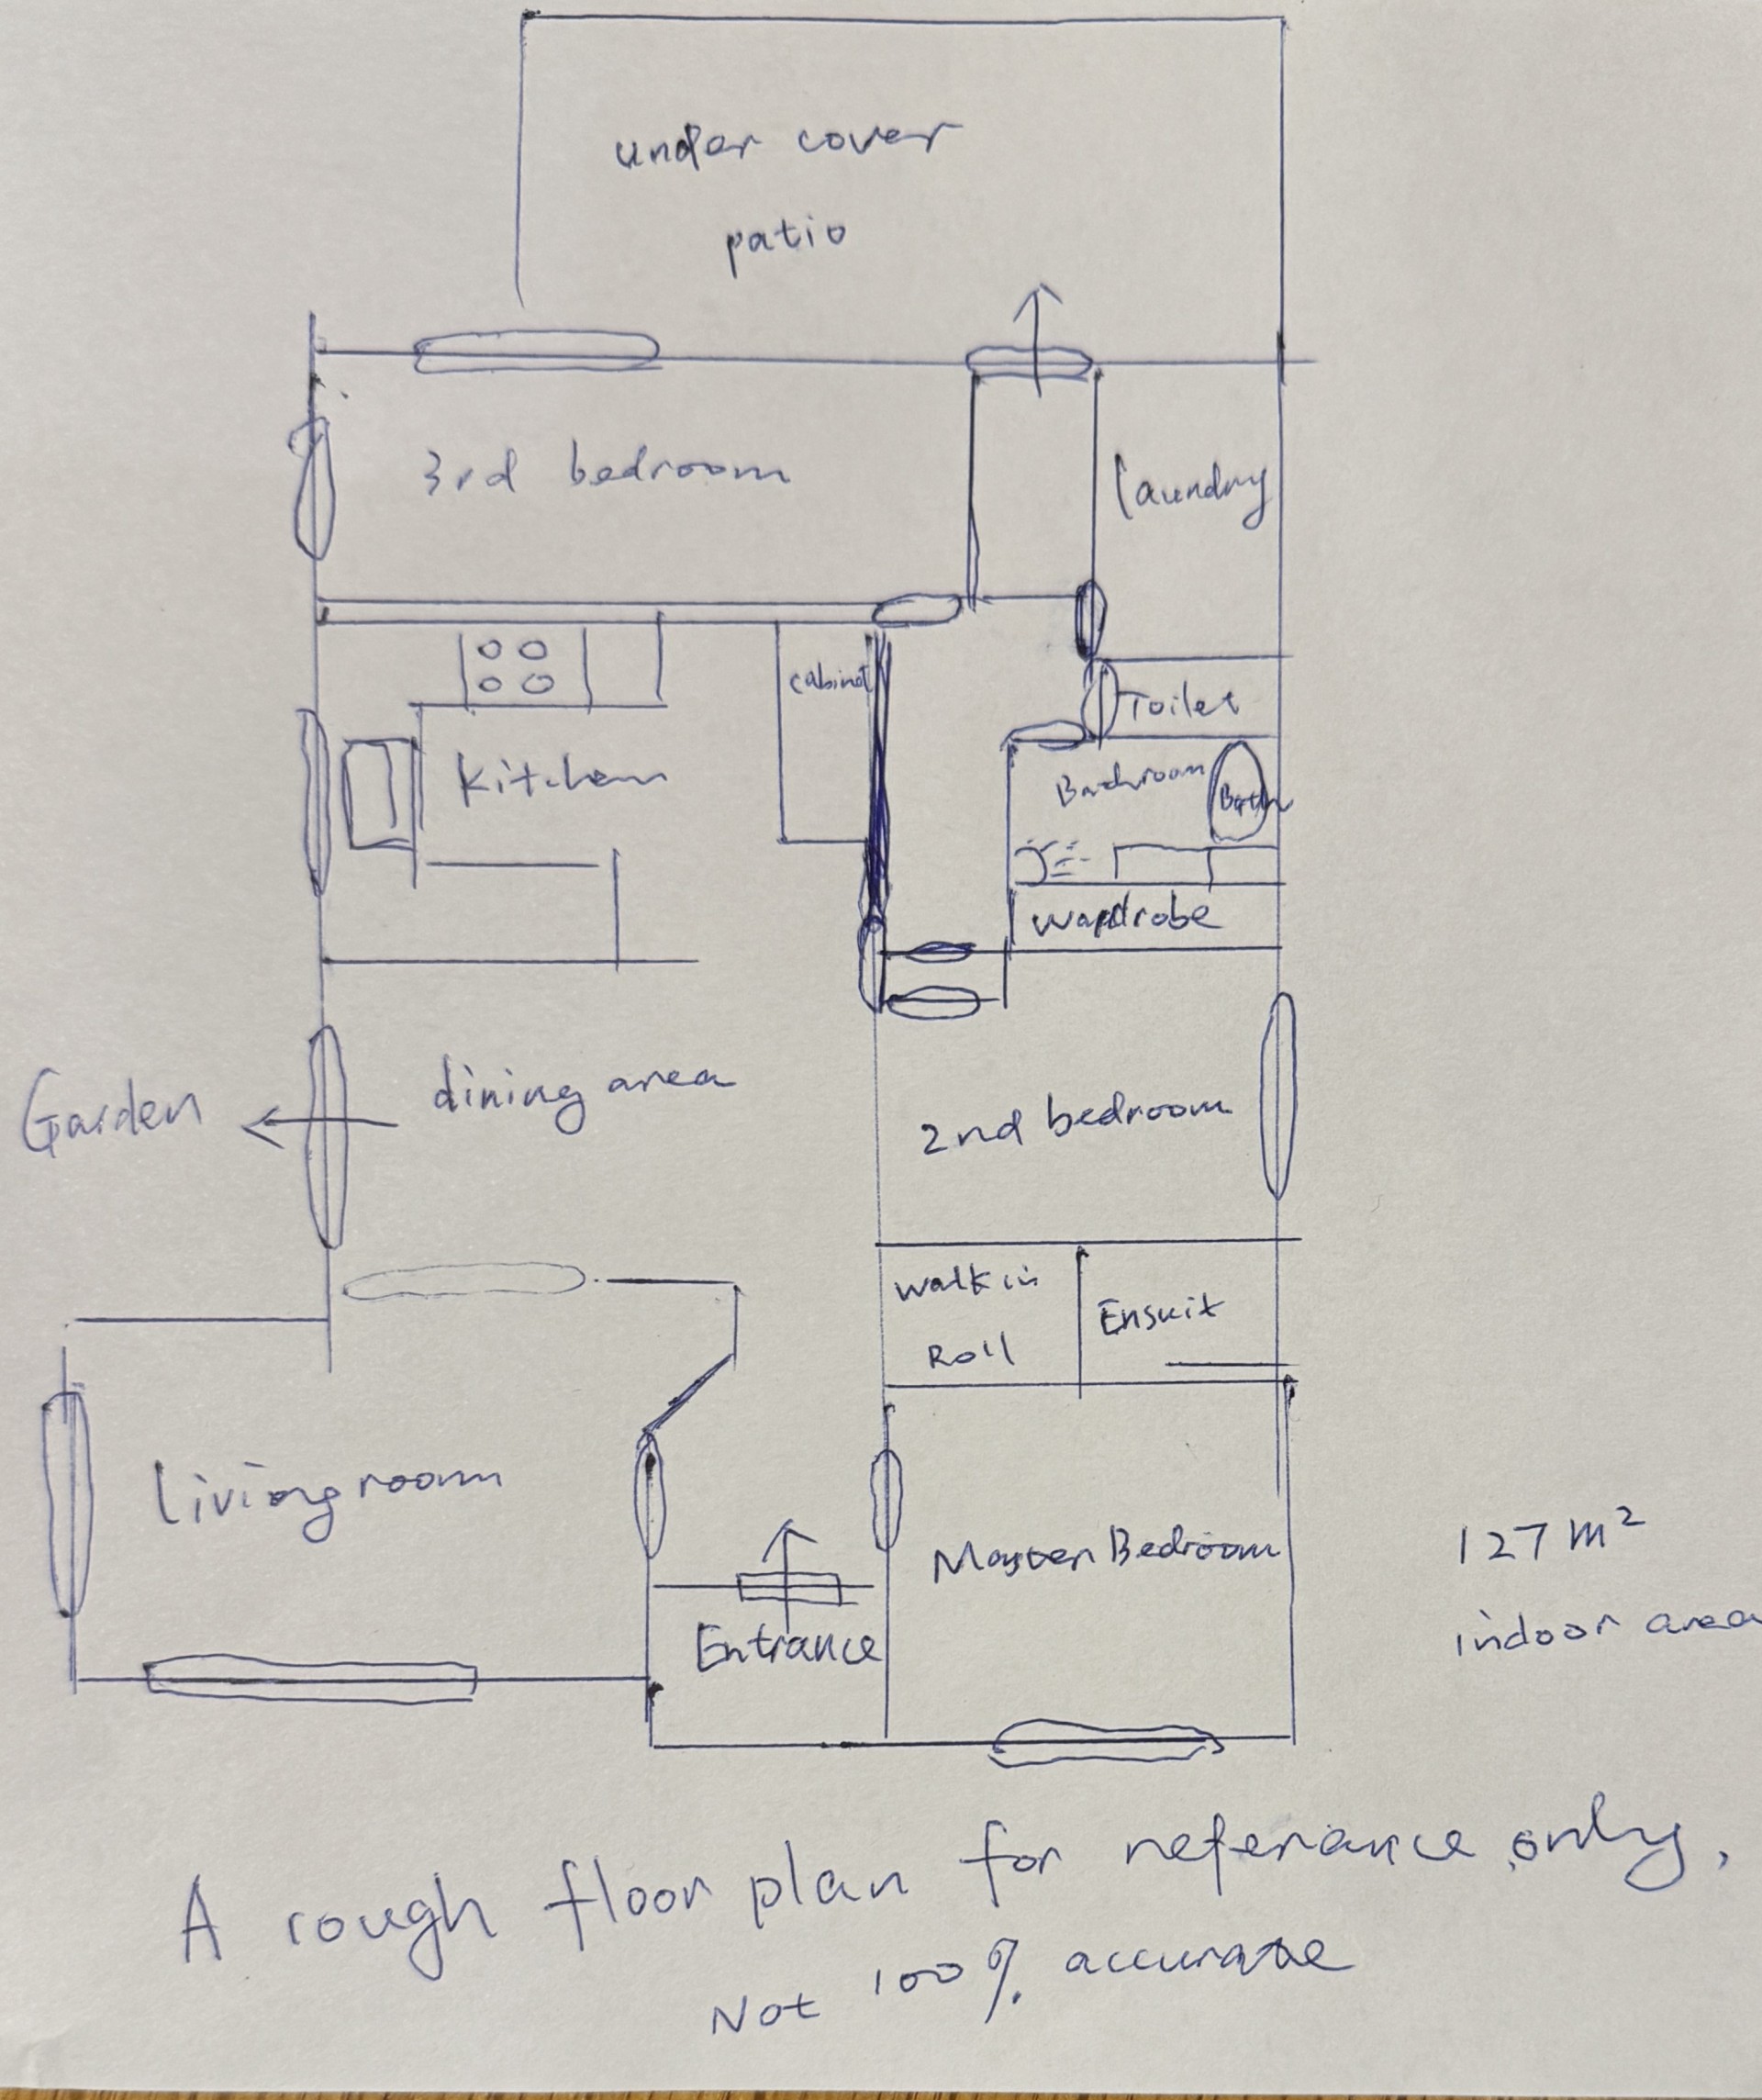 under cover
patio
3rd bedroom
laundry
cabinet
Toilet
Kitchen
Bathroom
Bath
Wardrobe
Garden
dining area
2nd bedroom
Walk in
Roll
Ensuit
living room
Master Bedroom
127 m²
indoor area
Entrance
A rough floor plan for referance only,
Not 100% accurate